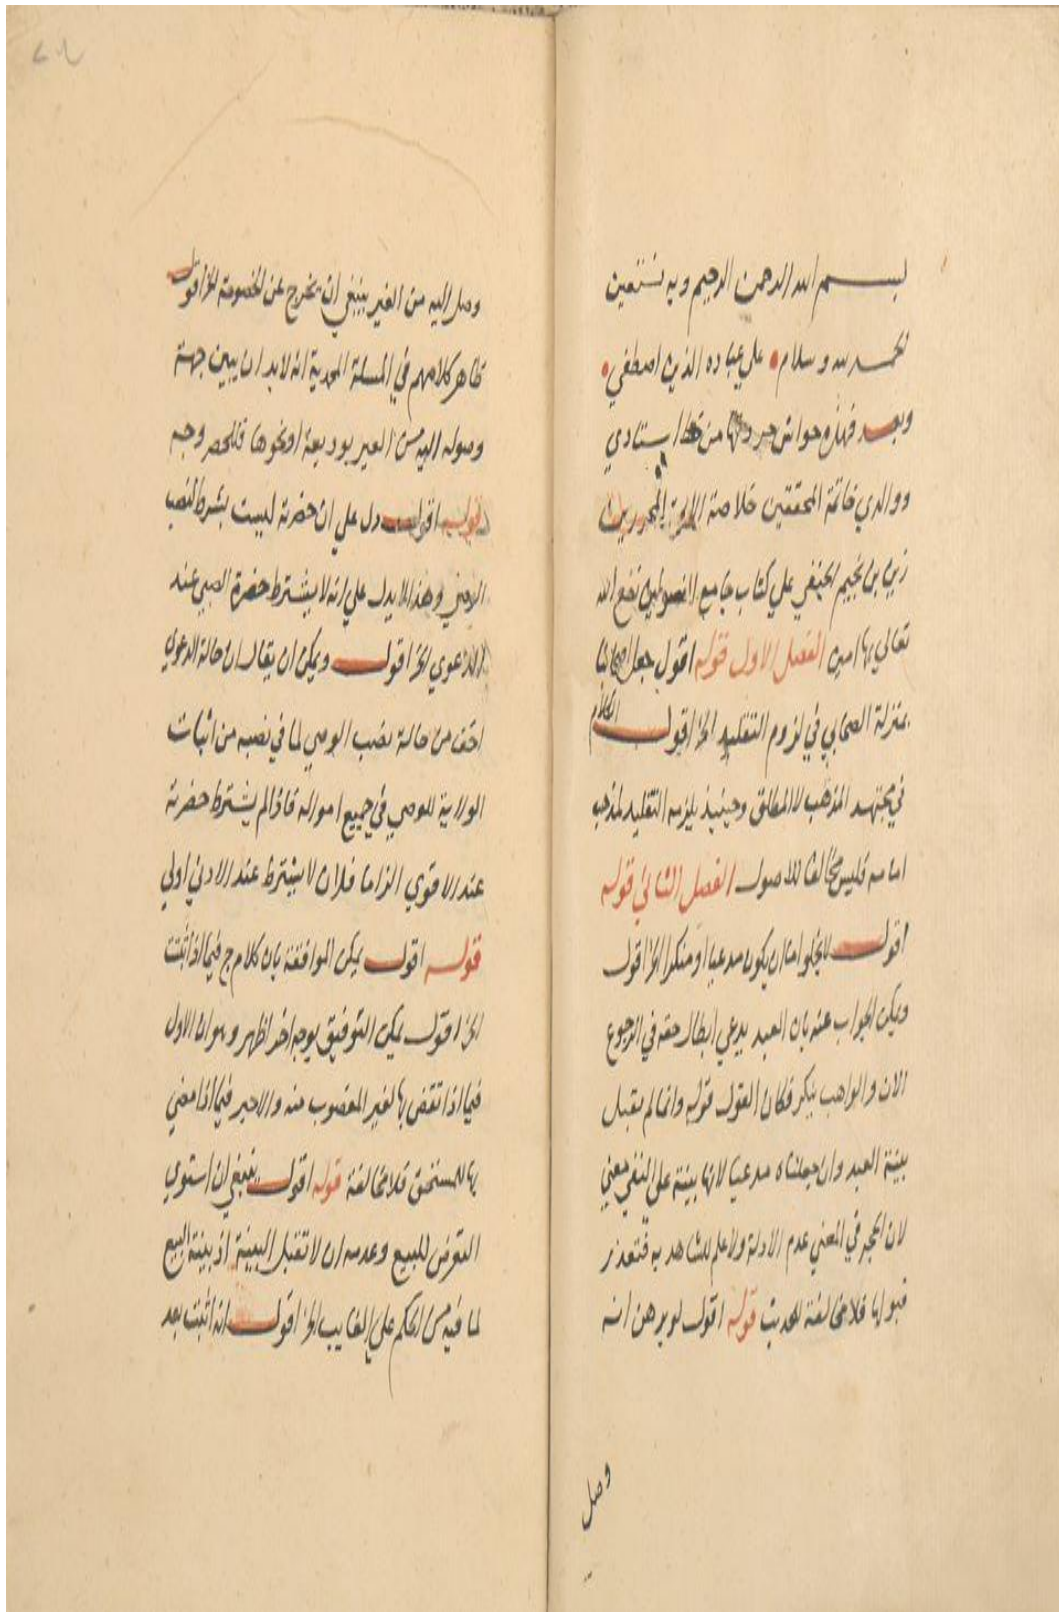 بسم الله الرحمن الرحيم وبه نستعين
الحمد لله وسلام على عباده الذين اصطفى
وبعد فهذه حواش جردتها من خط استادي
ووالدي خاتمة المحققين خلاصة الائمة المحررين
زين بن نجيم الحنفي علي كتاب جامع الفصولين نفع الله
تعالي بها امين الفصل الاول قوله اقول جعل
بمنزلة الصحابي في لزوم التقليد الخ اقول الكلام
في مجتهد المذهب لا المطلق وحينيذ يلزمه التقليد لمذهب
امامه فليس مخالفا للاصول الفصل الثاني قوله
اقول لا يخلوا اما ان يكون مدعيا او منكرا الخ اقول
ويمكن الجواب عنه بان العبد يدعي ابطال حقه في الرجوع
الان والواهب ينكر فكان القول قوله وانما لم يقبل
بينة العبد وان جعلناه مدعيا لانها بينة علي النفي معني
لان الحجر في المعني عدم الاذن ولا علم للشاهد به فتعذر
قبولها فلا مخالفة للحديث قوله اقول لو برهن انه
وصل
وصل اليه من الغير ينبغي ان يخرج عن الخصومة الخ اقول
ظاهر كلامهم في المسلة انه لابد ان يبين جهة
وصوله اليه من الغير بوديعة او نحوها فالحصر وجه
قوله اقول دل علي ان حضرته ليست بشرط لنصب
الوصي وهذا لا يدل علي انه لا يشترط حضرة الصبي عند
الدعوي الخ اقول ويمكن ان يقال ان حالة الدعوي
اخف من حالة نصب الوصي لما في نصبه من اثبات
الولاية للوصي في جميع امواله فاذا لم يشترط حضرته
عند الاقوي الزاما فلان لا يشترط عند الادني اولي
قوله اقول يمكن الموافقة بان كلام ج فيما اذا اثبت
الخ اقول يمكن التوفيق بوجه اخر اظهر وهو ان الاول
فيما اذا تقض بها لغير المغصوب منه والاخير فيما اذا قضي
بها للمستحق فلا مخالفة قوله اقول ينبغي ان استوي
التعرض للبيع وعدمه ان لا تقبل البينة اذ بينة البيع
لما فيه من الحكم علي الغايب الخ اقول انه اثبت بعد